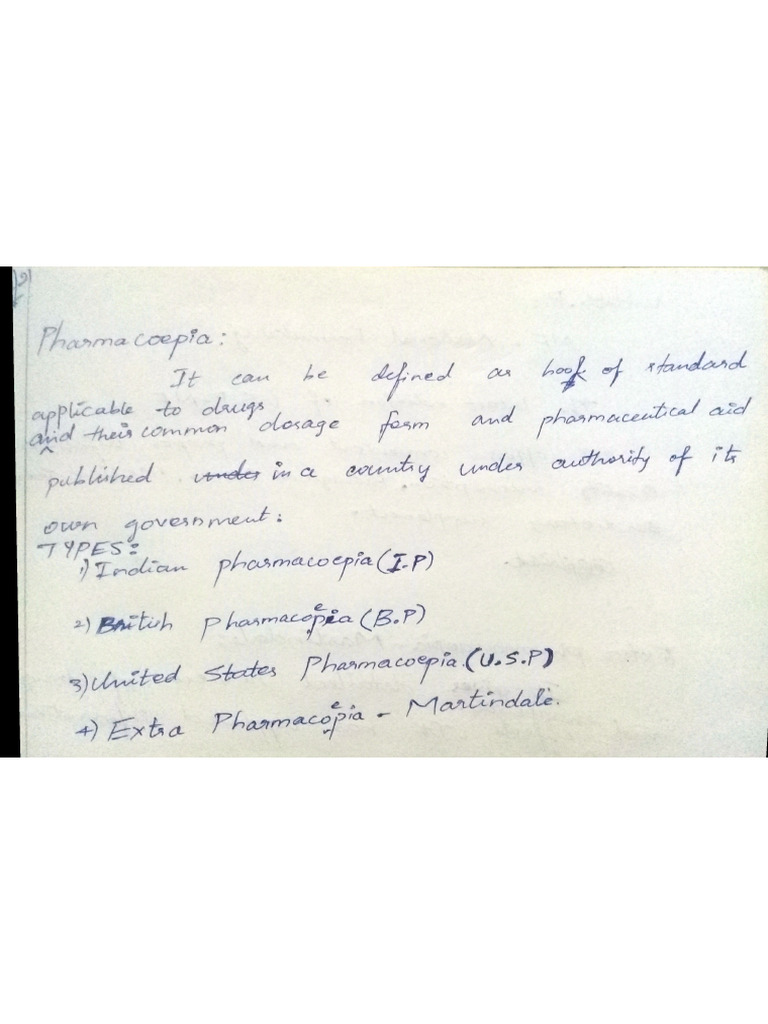 Pharmacoepia:
It can be defined as book of standard
applicable to drugs
and their common dosage form and pharmaceutical aid
published under in a country under authority of its
own government:
TYPES:
1) Indian pharmacoepia (I.P)
2) British Pharmacopeia (B.P)
3) United States Pharmacoepia. (U.S.P)
4) Extra Pharmacopeia - Martindale.